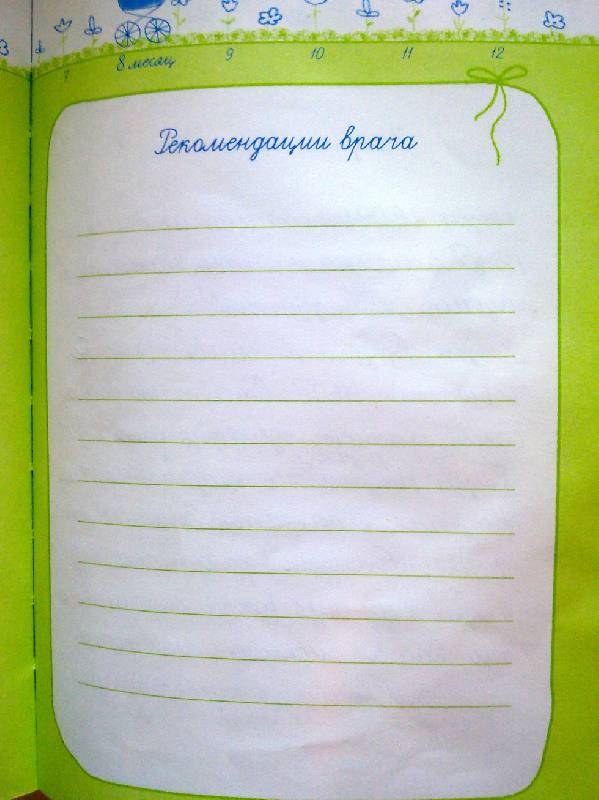 7 8 месяц 9 10 11 12
Рекомендации врача